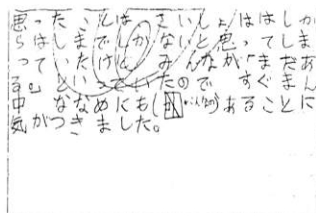 思ったことは さいしょははしか
らはしでしかないと思ってしま
ってましたけどみんなが「まだあ
る。」といっていたのですぐまん
中とななめにも(   )あることに
気がつきました。